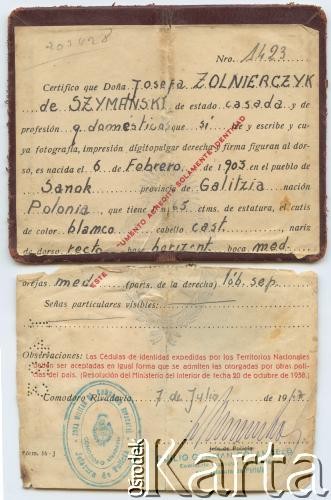 203628
Nro. 1423
Certifico que Doña Josefa ZOLNIERCZYK
de SZYMAÑSKI de estado casada y de
profesión q. domestica que si lee y escribe y cu-
ya fotografía, impresión dígitopulgar derecha y firma figuran al dor-
so, es nacida el 6 de Febrero de 1903 en el pueblo de
Sanok provincia de Galitzia nación
Polonia, que tiene 1 65 ctms. de estatura, el cutis
de color blanco cabello cast. nariz
de dorso recto horizont. boca med.
ESTE DOCUMENTO ACREDITA SOLAMENTE IDENTIDAD
orejas med (parts. de la derecha) lób. sep.
Señas particulares visibles:
Observaciones: Las Cédulas de identidad expedidas por los Territorios Nacionales
deben ser aceptadas en igual forma que se admiten las otorgadas por otras poli-
cías del país. (Resolución del Ministerio del Interior de fecha 20 de octubre de 1938.)
Comodoro Rivadavia, 7 de Julio de 19
Jefatura de Policía
Jefe de Policía
Form. 14-J
ośrodek
Karta